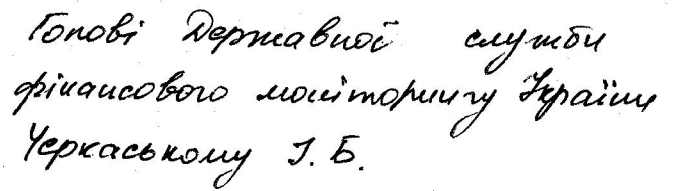 Голові Державної служби
фінансового моніторингу України
Черкаському І. Б.